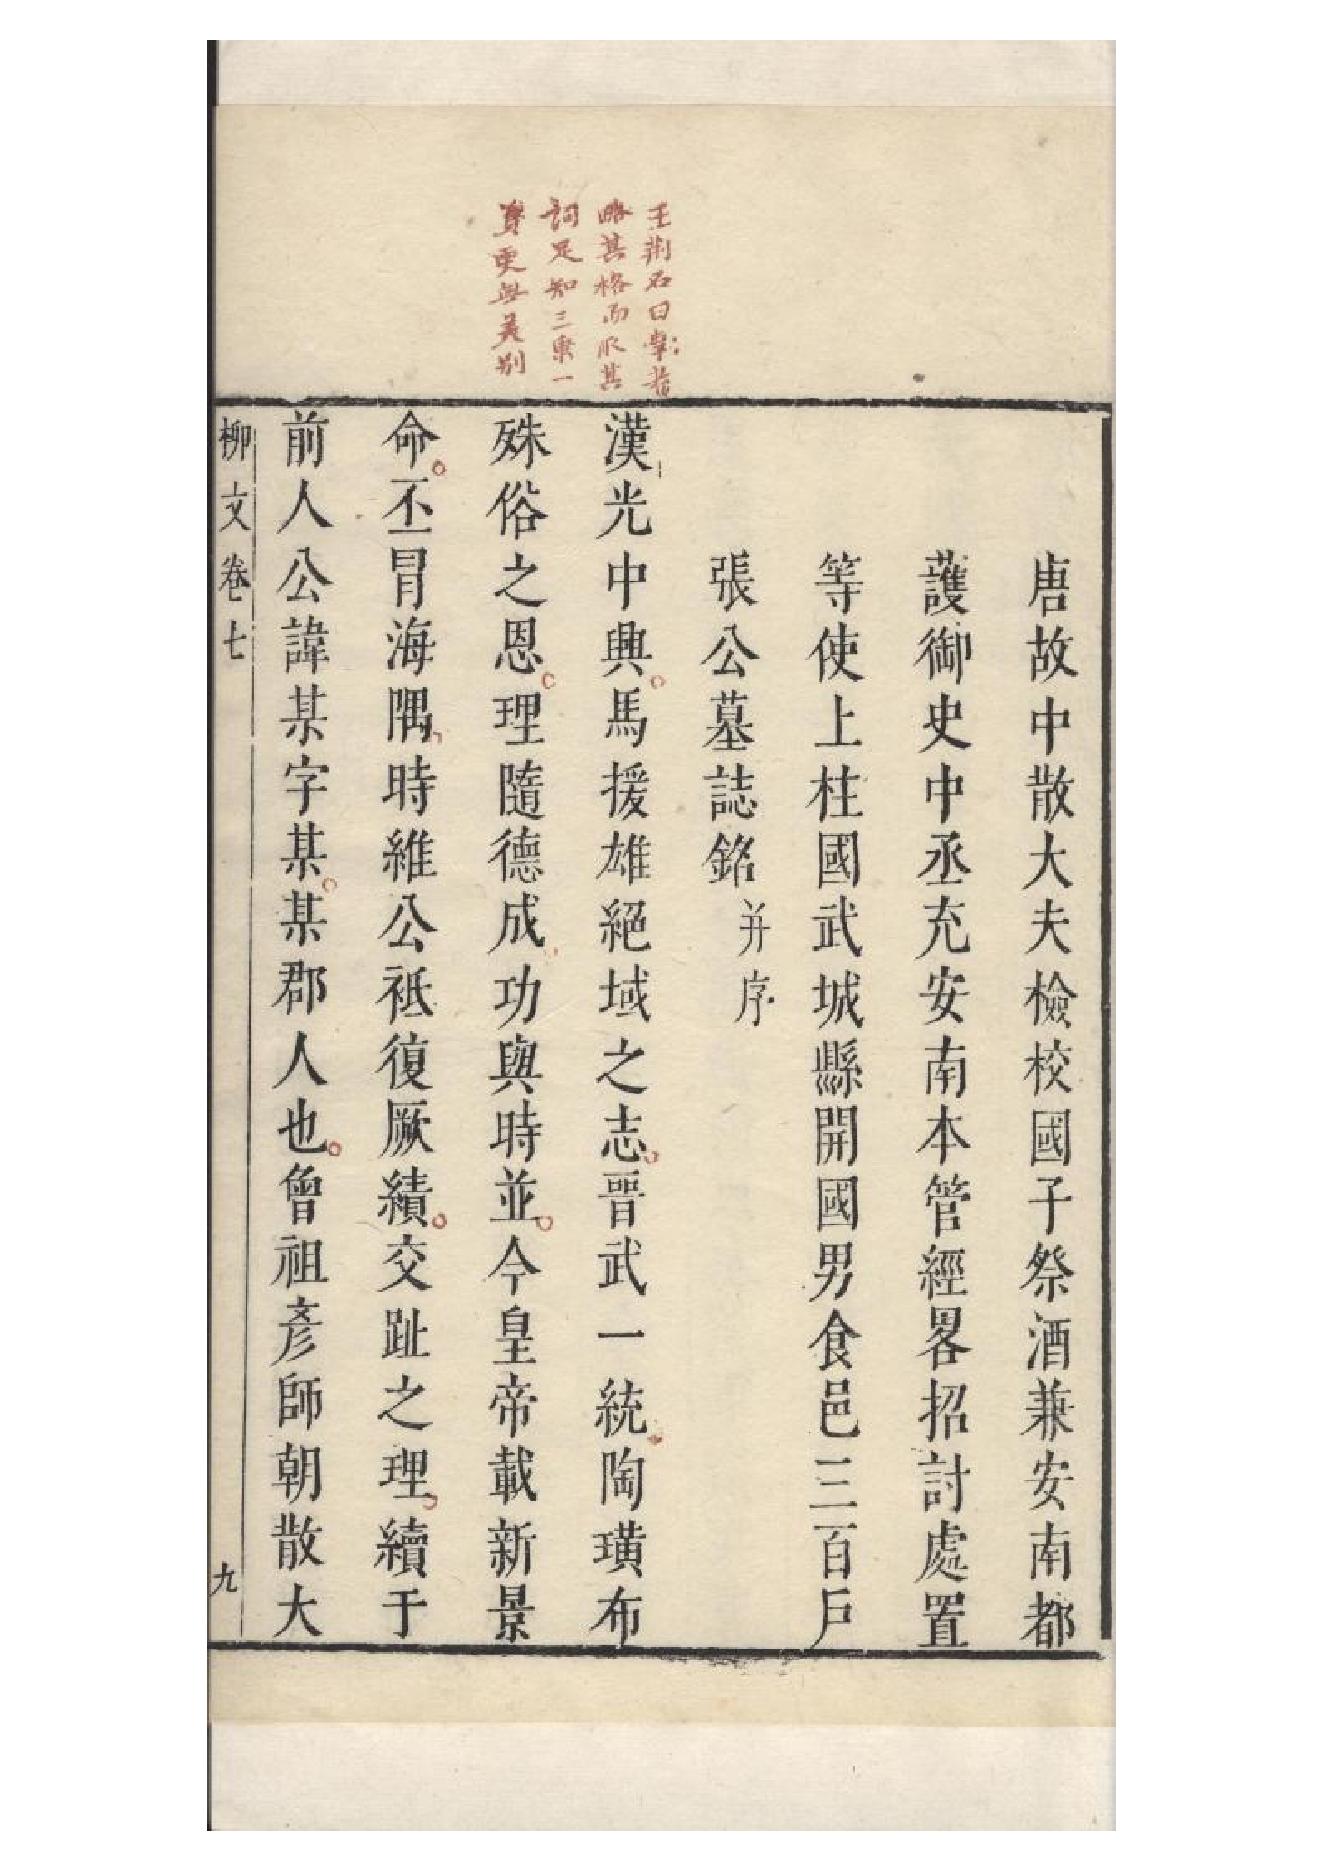 王荊石曰掌捨
略其格而取其
詞足知三東一
實更無異別
唐故中散大夫檢校國子祭酒兼安南都
護御史中丞充安南本管經畧招討處置
等使上柱國武城縣開國男食邑三百戶
張公墓誌銘并序
漢光中興馬援雄絕域之志晉武一統陶璜布
殊俗之恩理隨德成功與時並今皇帝載新景
命丕冒海隅時維公祗復厥績交趾之理續于
前人公諱某字某某郡人也曾祖彥師朝散大
柳文卷七
九